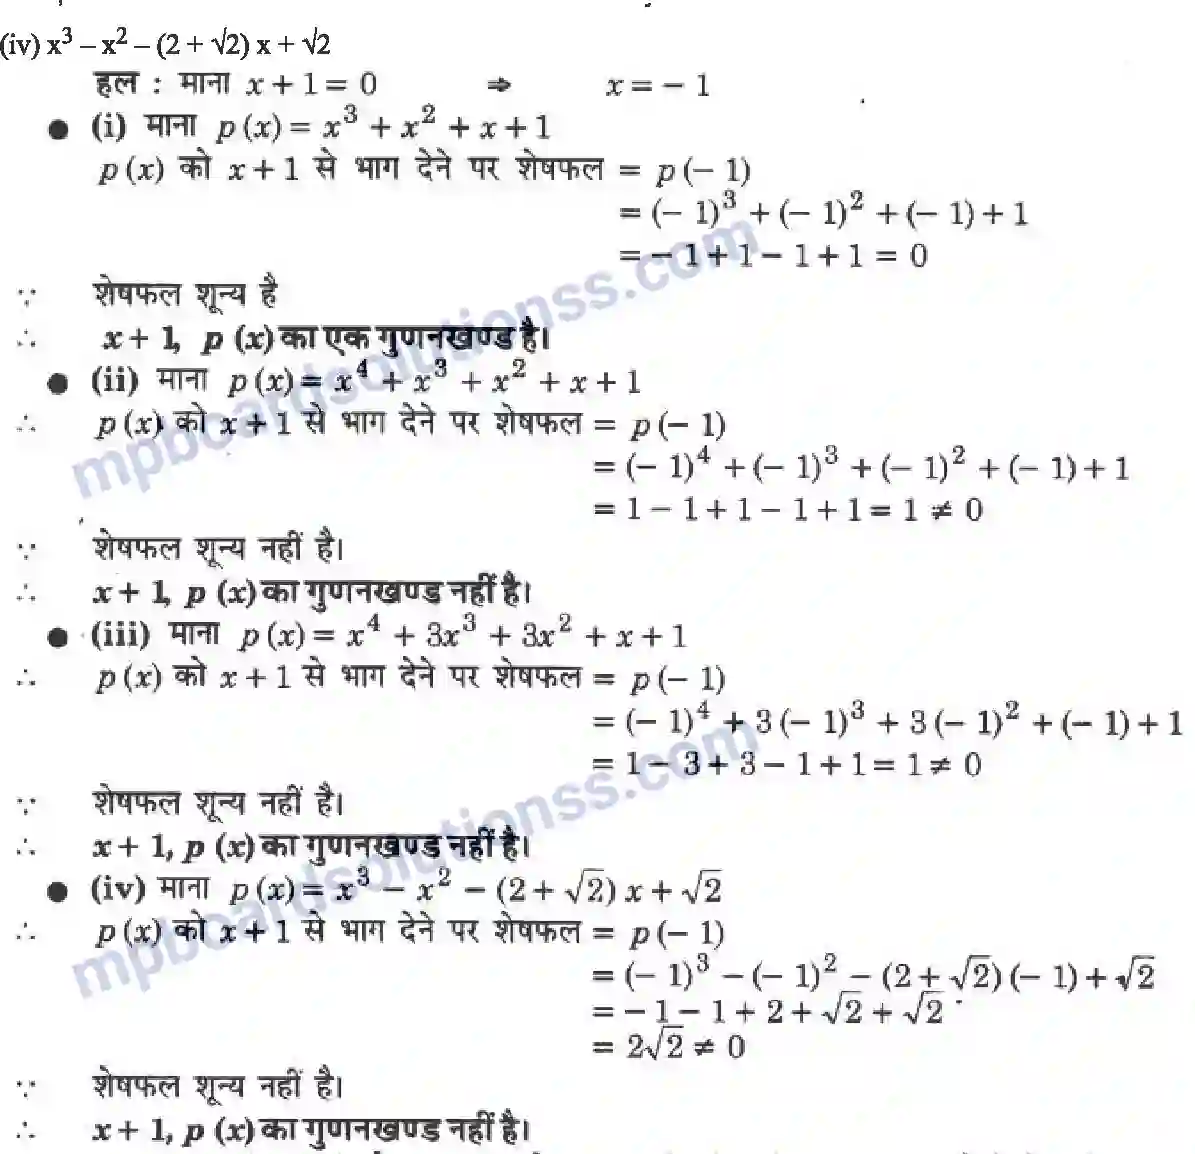 (iv) x³ – x² – (2 + √2) x + √2
हल : माना x + 1 = 0 ⇒ x = – 1
● (i) माना p (x) = x³ + x² + x + 1
p (x) को x + 1 से भाग देने पर शेषफल = p (– 1)
= (– 1)³ + (– 1)² + (– 1) + 1
= – 1 + 1 – 1 + 1 = 0
∵ शेषफल शून्य है
∴ x + 1, p (x) का एक गुणनखण्ड है।
● (ii) माना p (x) = x⁴ + x³ + x² + x + 1
∴ p (x) को x + 1 से भाग देने पर शेषफल = p (– 1)
= (– 1)⁴ + (– 1)³ + (– 1)² + (– 1) + 1
= 1 – 1 + 1 – 1 + 1 = 1 ≠ 0
∵ शेषफल शून्य नहीं है।
∴ x + 1, p (x) का गुणनखण्ड नहीं है।
● (iii) माना p (x) = x⁴ + 3x³ + 3x² + x + 1
∴ p (x) को x + 1 से भाग देने पर शेषफल = p (– 1)
= (– 1)⁴ + 3 (– 1)³ + 3 (– 1)² + (– 1) + 1
= 1 – 3 + 3 – 1 + 1 = 1 ≠ 0
∵ शेषफल शून्य नहीं है।
∴ x + 1, p (x) का गुणनखण्ड नहीं है।
● (iv) माना p (x) = x³ – x² – (2 + √2) x + √2
∴ p (x) को x + 1 से भाग देने पर शेषफल = p (– 1)
= (– 1)³ – (– 1)² – (2 + √2) (– 1) + √2
= – 1 – 1 + 2 + √2 + √2
= 2√2 ≠ 0
∵ शेषफल शून्य नहीं है।
∴ x + 1, p (x) का गुणनखण्ड नहीं है।
mpboardsolutionss.com
mpboardsolutionss.com